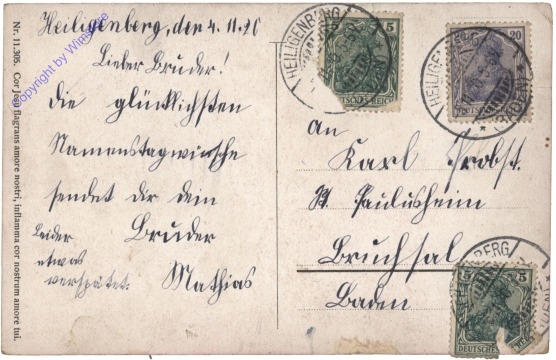 Heiligenberg, den 4.11.20
Lieber Bruder!
Die glücklichsten
Namenstagwünsche
sendet dir dein
Bruder
Mathias
Leider
etwas
verspätet.
An
Karl Probst.
St. Paulusheim
Bruchsal
Baden
Nr. 11.305. Cor Jesu flagrans amore nostri, inflamma cor nostrum amore tui.
HEILIGENBERG
5
DEUTSCHES REICH
HEILIGENBERG
20
5 5
DEUTSCHES
Copyright by